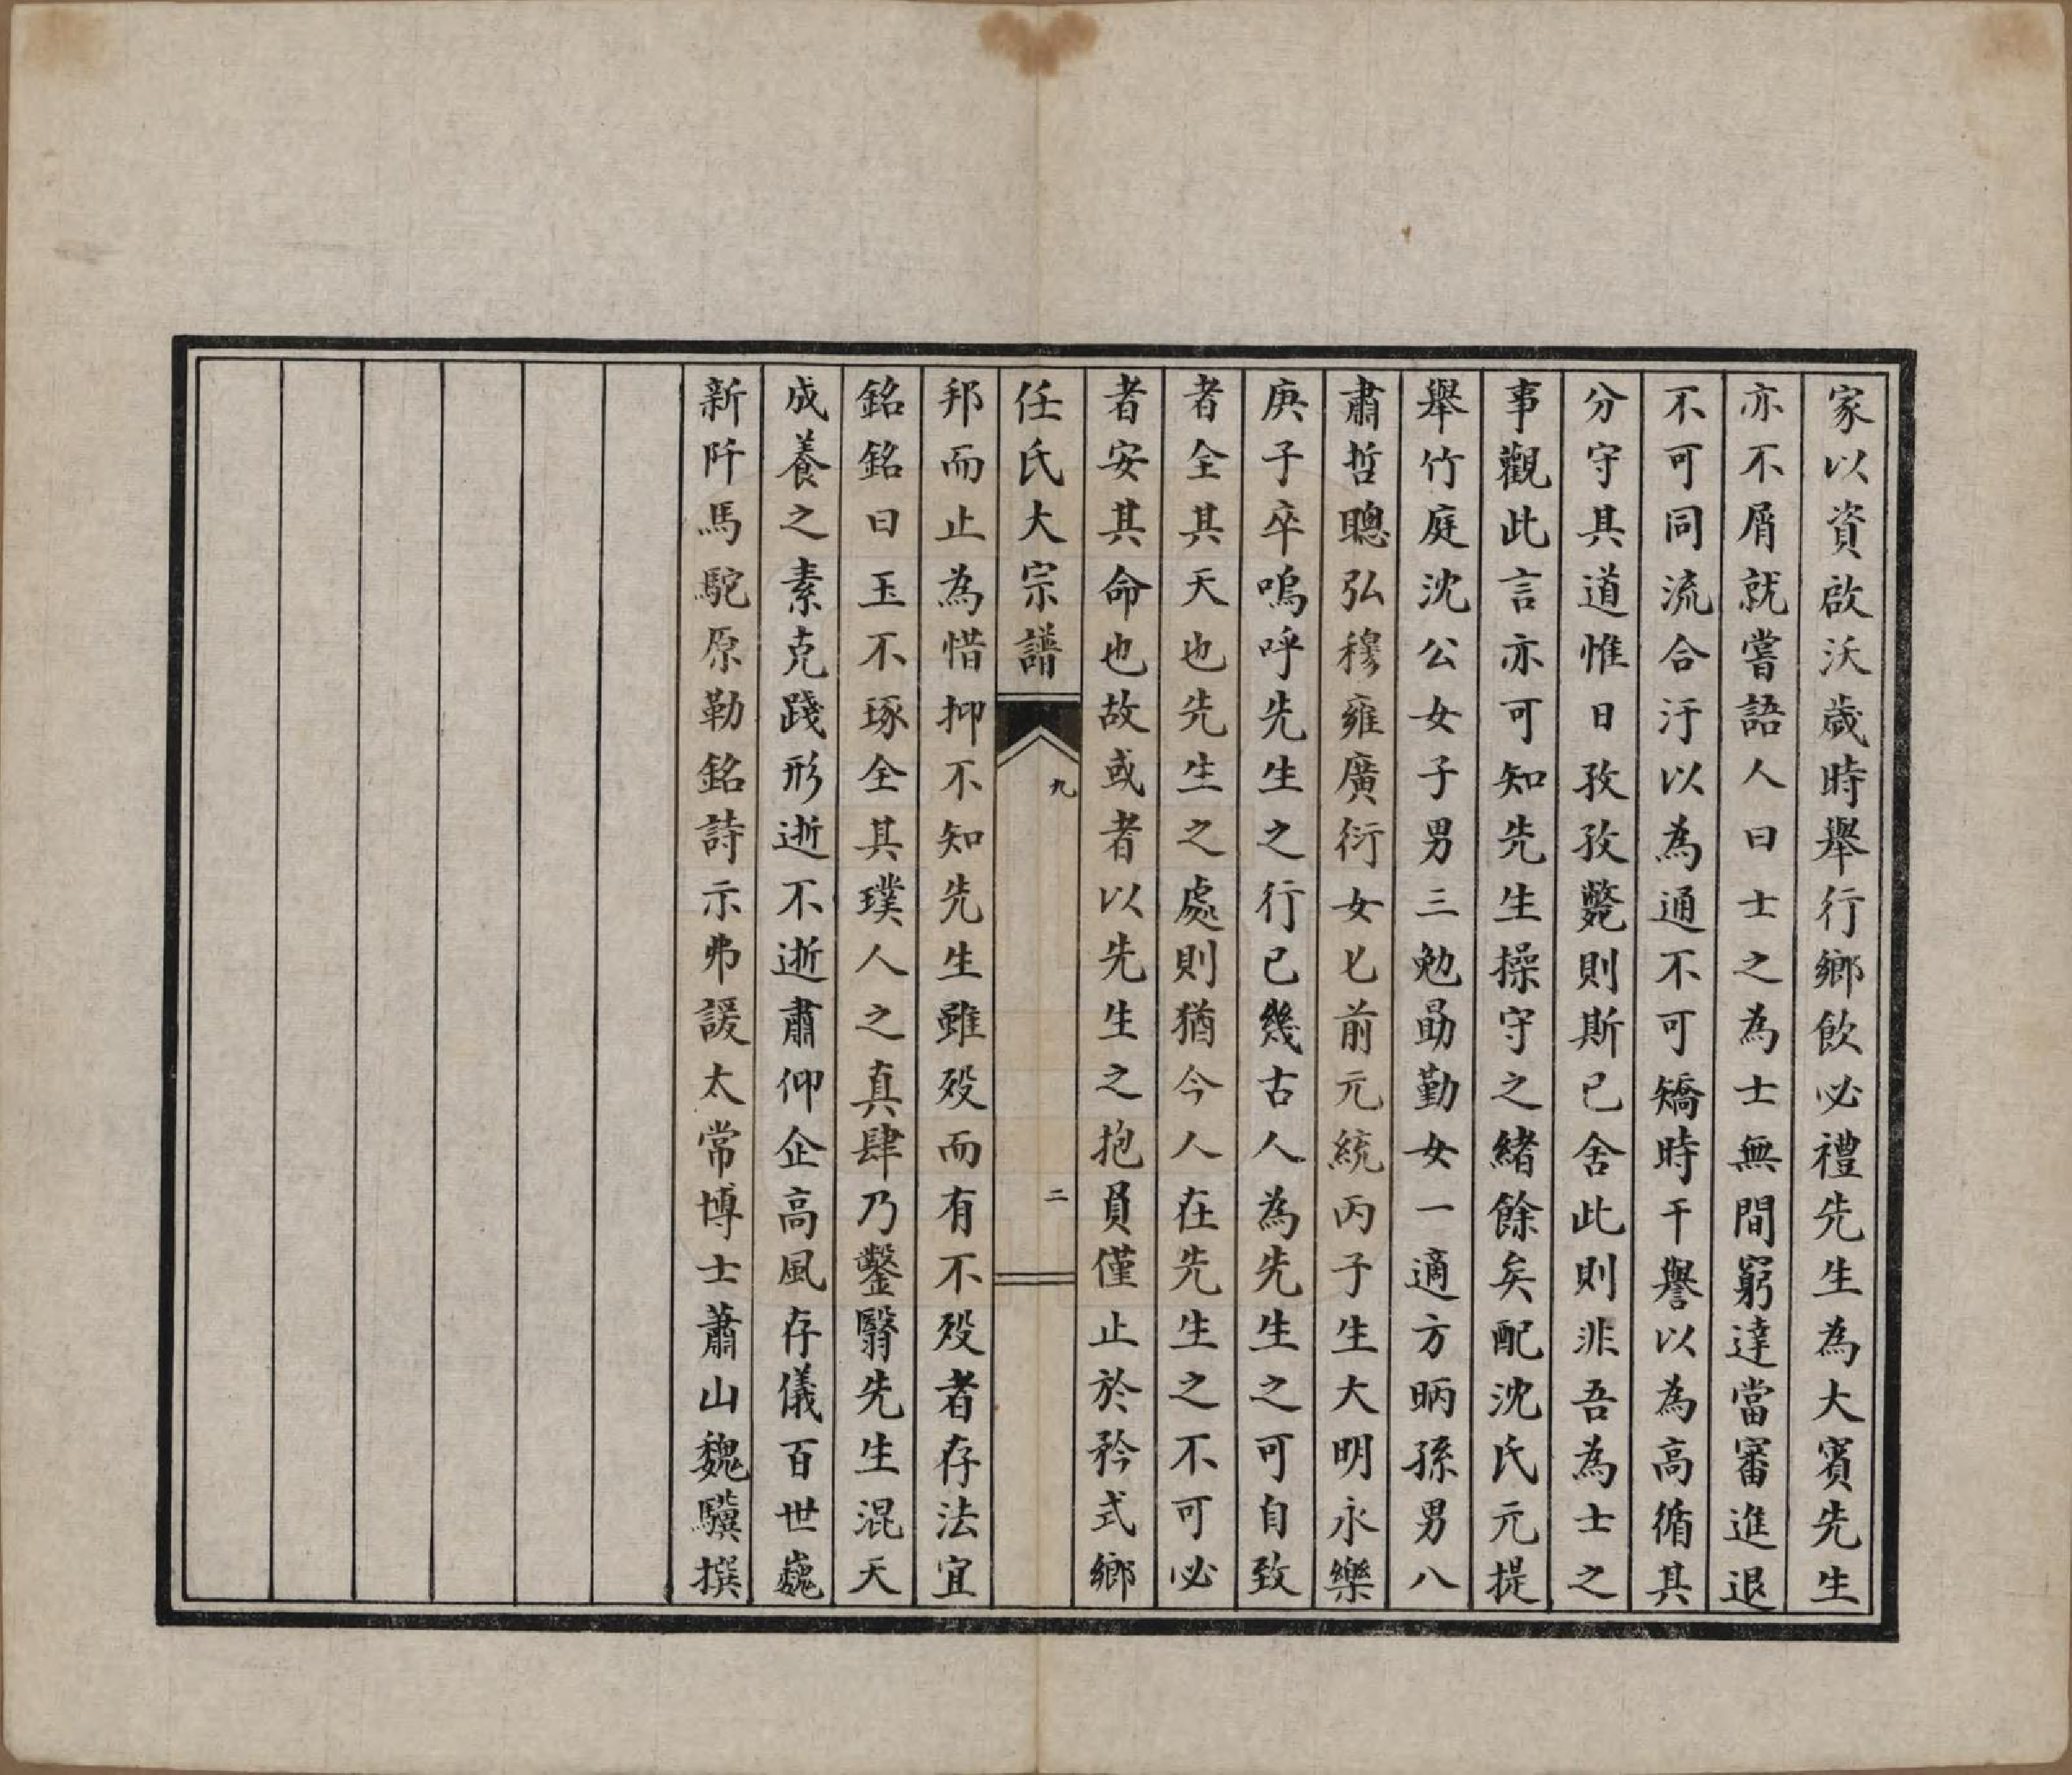 家以資啟沃歲時舉行鄉飲必禮先生為大賓先生
亦不屑就嘗語人曰士之為士無間窮達當審進退
不可同流合汙以為通不可矯時干譽以為高循其
分守其道惟日孜孜斃則斯已舍此則非吾為士之
事觀此言亦可知先生操守之緒餘矣配沈氏元提
舉竹庭沈公女子男三勉勗勤女一適方昞孫男八
肅哲聰弘穆雍廣衍女七前元統丙子生大明永樂
庚子卒嗚呼先生之行已幾古人為先生之可自致
者全其天也先生之處則猶今人在先生之不可必
者安其命也故或者以先生之抱員僅止於矜式鄉
任氏大宗譜 九 二
邦而止為惜抑不知先生雖歿而有不歿者存法宜
銘銘曰玉不琢全其璞人之真肆乃鑿翳先生混天
成養之素克踐形逝不逝肅仰企高風存儀百世巍
新阡馬駝原勒銘詩示弗諼太常博士蕭山魏驥撰